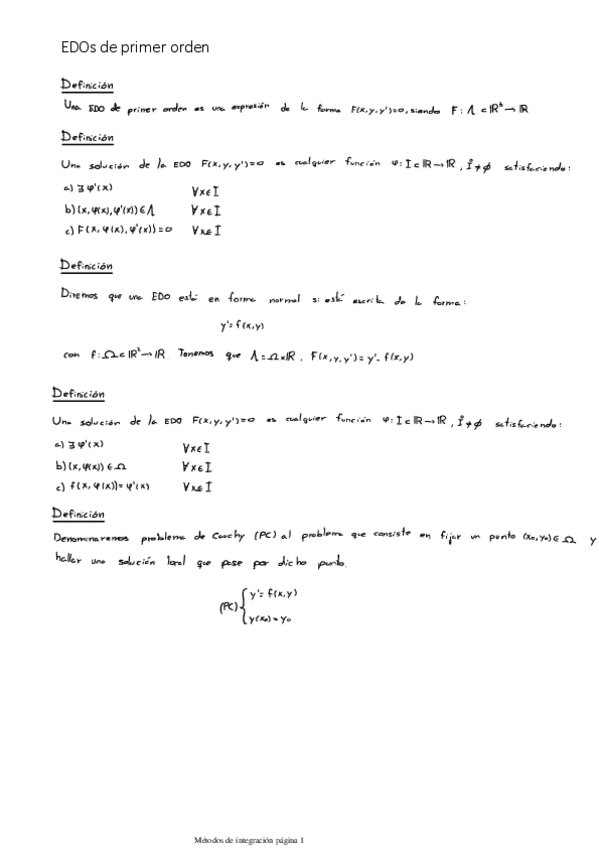 EDOs de primer orden
Definición
Una EDO de primer orden es una expresión de la forma F(x,y,y')=0, siendo F: Λ⊂ℝ³→ℝ
Definición
Una solución de la EDO F(x,y,y')=0 es cualquier función φ: I⊂ℝ→ℝ, I̊≠∅ satisfaciendo:
a) ∃ φ'(x) ∀x∈I
b) (x, φ(x), φ'(x))∈Λ ∀x∈I
c) F(x, φ(x), φ'(x))=0 ∀x∈I
Definición
Diremos que una EDO está en forma normal si está escrita de la forma:
y'=f(x,y)
con f: Ω⊂ℝ²→ℝ. Tenemos que Λ=Ω×ℝ, F(x,y,y')=y'-f(x,y)
Definición
Una solución de la EDO F(x,y,y')=0 es cualquier función φ: I⊂ℝ→ℝ, I̊≠∅ satisfaciendo:
a) ∃ φ'(x) ∀x∈I
b) (x, φ(x))∈Ω ∀x∈I
c) f(x, φ(x))=φ'(x) ∀x∈I
Definición
Denominaremos problema de Cauchy (PC) al problema que consiste en fijar un punto (x₀,y₀)∈Ω y
hallar una solución local que pase por dicho punto.
(PC) { y'=f(x,y)
y(x₀)=y₀
Métodos de integración página 1